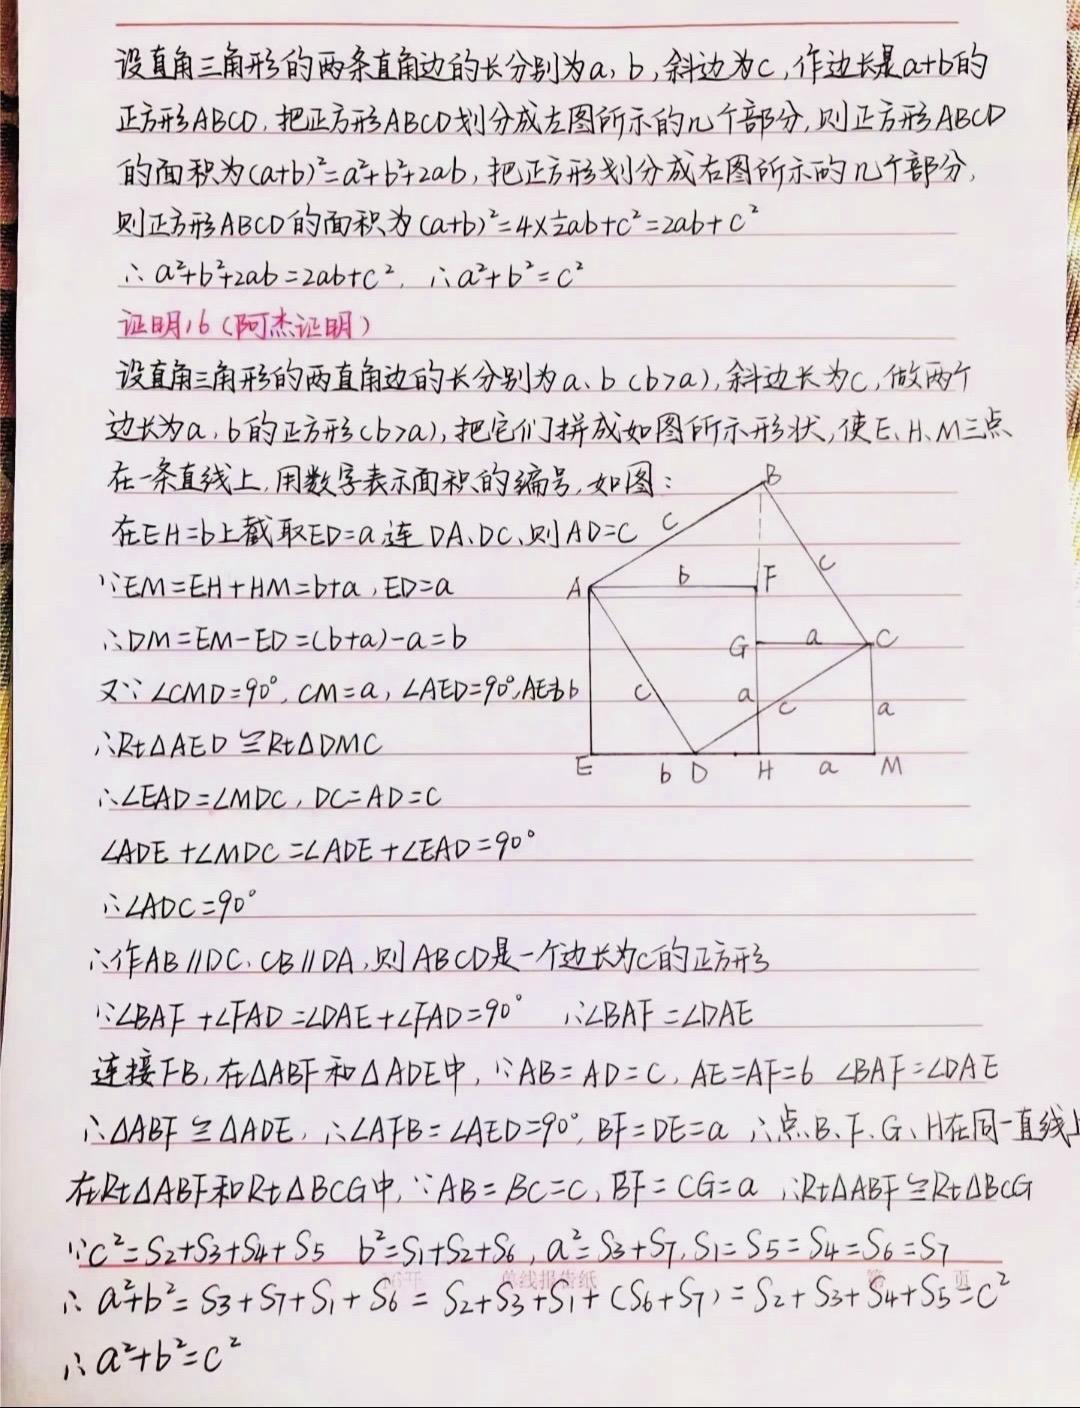 设直角三角形的两条直角边的长分别为a、b,斜边为c,作边长是a+b的
正方形ABCD,把正方形ABCD划分成左图所示的几个部分,则正方形ABCD
的面积为(a+b)²=a²+b²+2ab,把正方形划分成右图所示的几个部分,
则正方形ABCD的面积为(a+b)²=4×½ab+c²=2ab+c²
∴a²+b²+2ab=2ab+c², ∴a²+b²=c²
证明16(阿杰证明)
设直角三角形的两直角边的长分别为a、b(b>a),斜边长为c,做两个
边长为a,b的正方形(b>a),把它们拼成如图所示形状,使E、H、M三点
在一条直线上,用数字表示面积的编号,如图:
在EH=b上截取ED=a,连DA、DC,则AD=C
∵EM=EH+HM=b+a,ED=a
∴DM=EM-ED=(b+a)-a=b
又∵∠CMD=90°,CM=a,∠AED=90°,AE=b
∴Rt△AED≌Rt△DMC
∴∠EAD=∠MDC,DC=AD=C
∠ADE+∠MDC=∠ADE+∠EAD=90°
∴∠ADC=90°
∴作AB∥DC,CB∥DA,则ABCD是一个边长为c的正方形
∵∠BAF+∠FAD=∠DAE+∠FAD=90° ∴∠BAF=∠DAE
连接FB,在△ABF和△ADE中,∵AB=AD=C,AE=AF=b ∠BAF=∠DAE
∴△ABF≌△ADE,∴∠AFB=∠AED=90°,BF=DE=a ∴点B、F、G、H在同一直线上
在Rt△ABF和Rt△BCG中,∵AB=BC=C,BF=CG=a ∴Rt△ABF≌Rt△BCG
∵c²=S2+S3+S4+S5 b²=S1+S2+S6,a²=S3+S7,S1=S5=S4=S6=S7
∴a²+b²=S3+S7+S1+S6=S2+S3+S1+(S6+S7)=S2+S3+S4+S5=c²
∴a²+b²=c²
B
c
c
A
b
F
G
a
C
c
a
c
a
E
b
D
H
a
M
单线报告纸
第
页